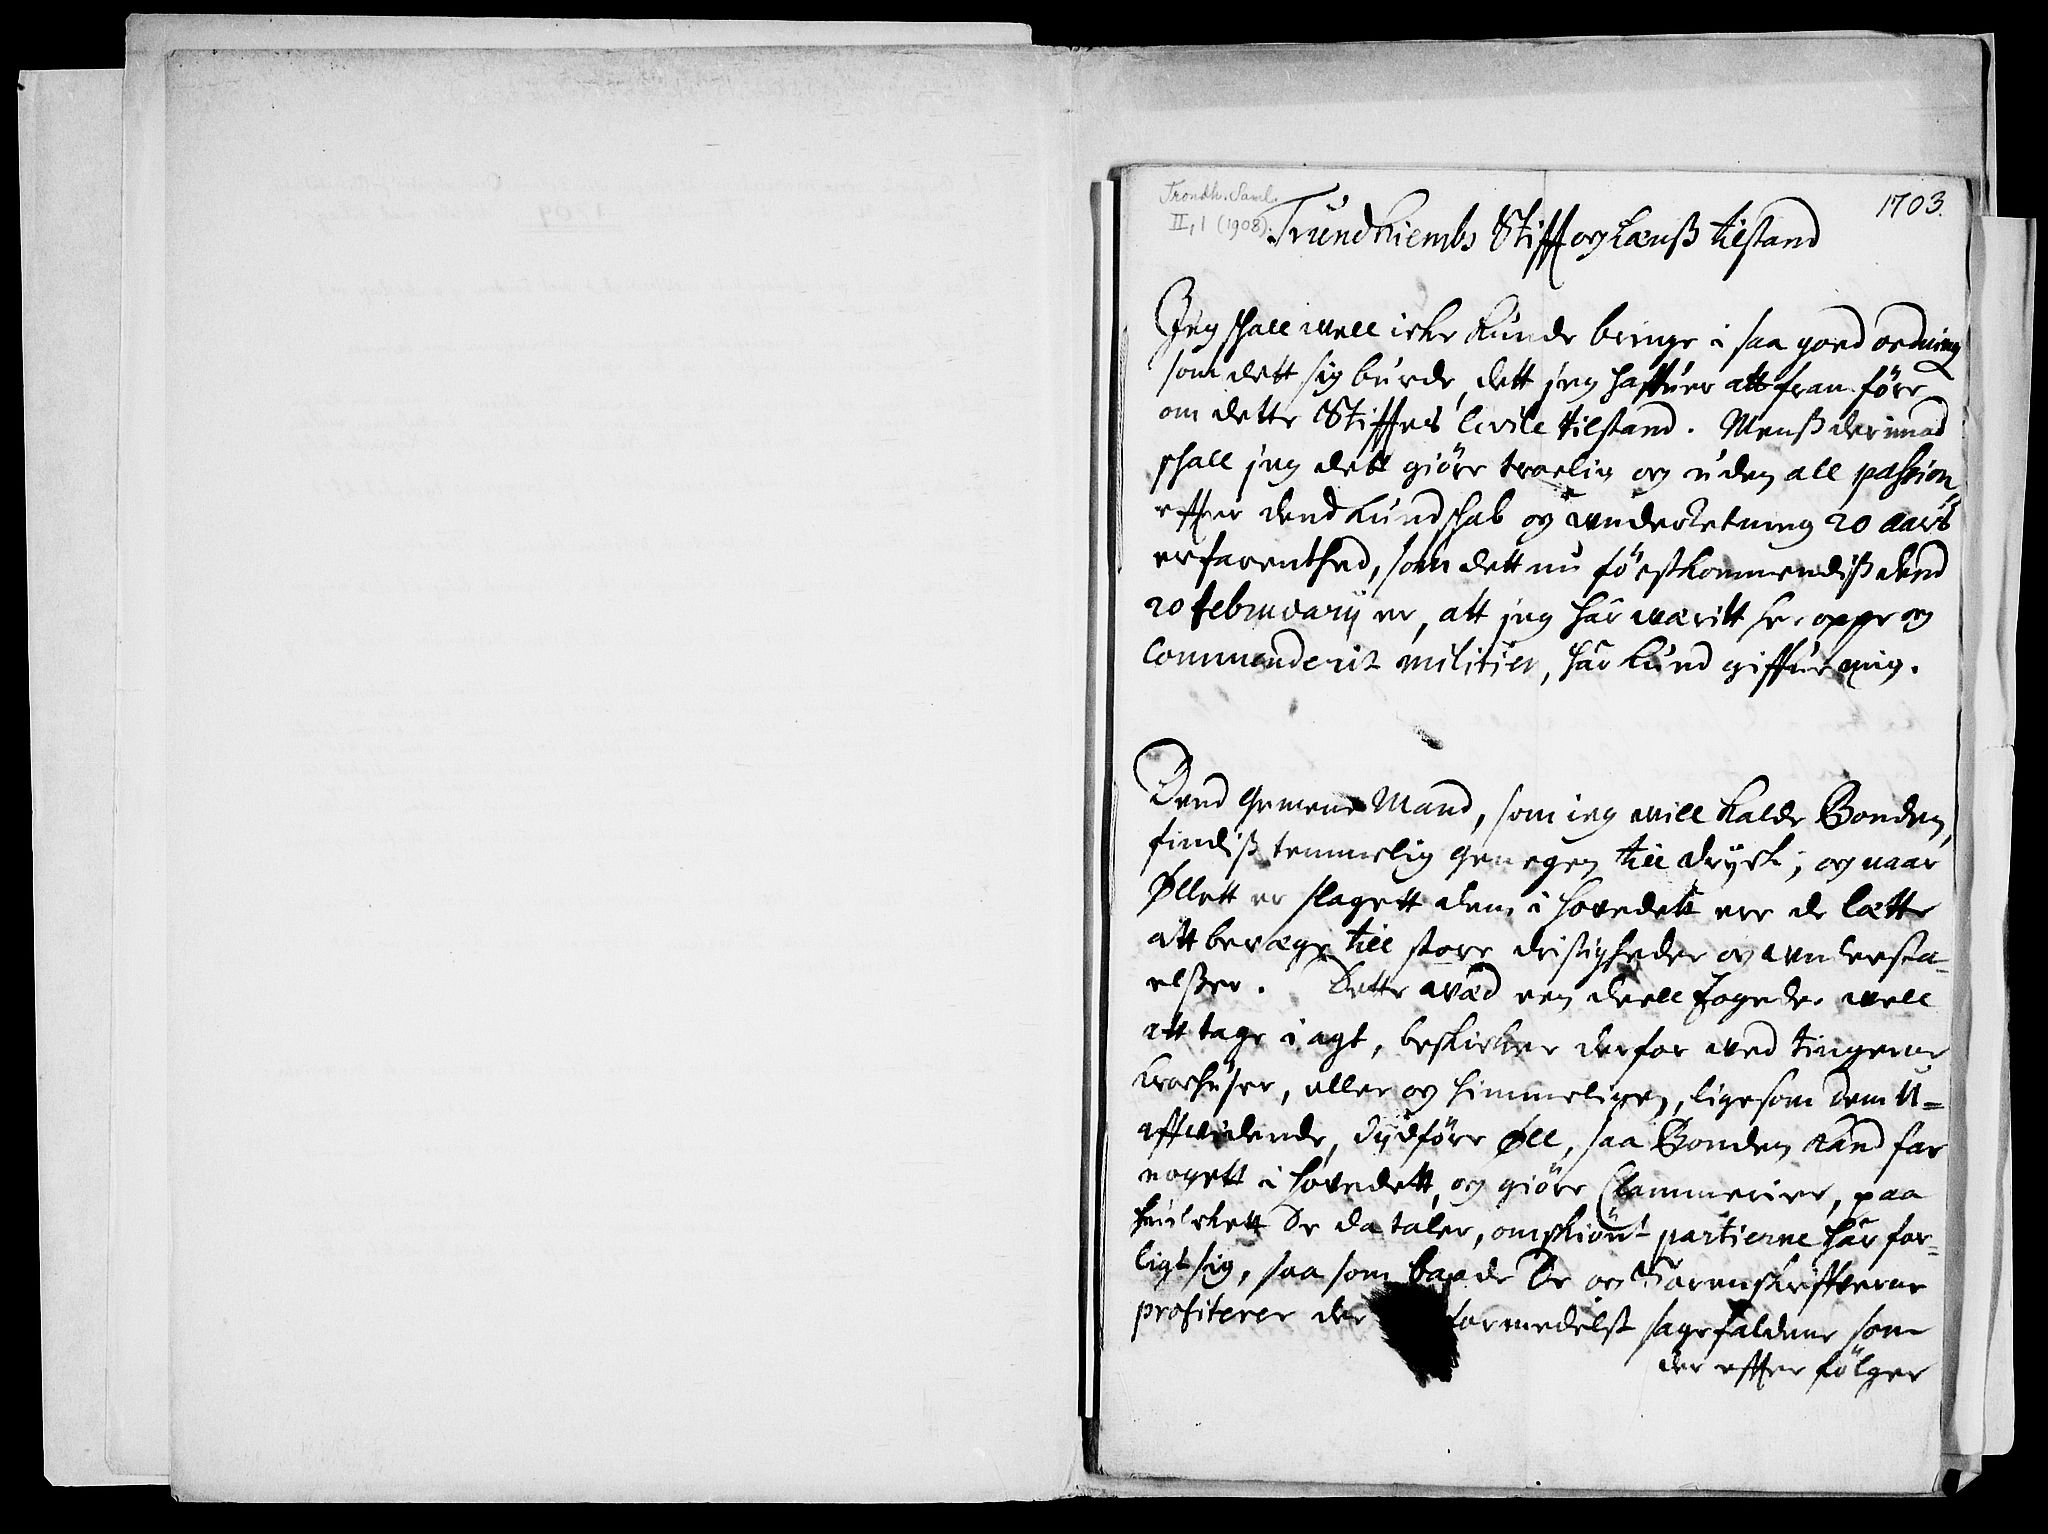 Trondh. Saml.
II,1 (1908).
1703.
Trundhiembs Stifft og Læns tilstand
Jeg schall well icke kunde bringe i saa goed ordning
som dett sig burde, dett jeg haffuer att fram före
om dette Stifftes Civile tilstand. Menss derimod
schall jeg dett giöre troelig og uden all passion,
effter dend kundschab og underretning 20 aars
erfarenthed, som dett nu förstkommendiss dend
20 februarij er, att jeg har wæritt her oppe og
Commenderit militien, har kund giffue mig.
Dend Gemene Mand, som jeg will kalde Bonden,
findiss temmelig genegen till dryck, og naar
Øllett er slagett dem i hovedett ere de lætte
att bevæge till store dristigheder og understa-
elsser. Dette wæd een deell Fogeder well
att tage i agt, beskicker derfor wed tingene
kroehuser, eller og himmeligen, ligesom dem U-
affvidende, dijdföre Øll, saa Bonden kand faa
nogett i hovedett, og giöre Clammerier, paa
huilckett de da taler, omskiönt partierne har for-
ligt sig, saa som baade De og Sorenskriffverne
profiterer der formedelst sagefaldene som
der effter fölger